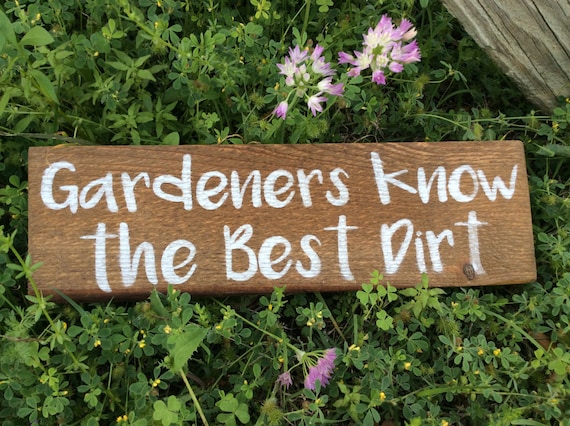 Gardeners Know
the Best Dirt